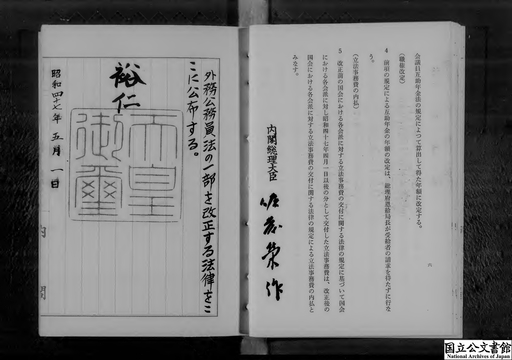 会議員互助年金法の規定によつて算出して得た年額に改定する。
(職権改定)
4 前項の規定による互助年金の年額の改定は、総理府恩給局長が受給者の請求を待たずに行な
う。
(立法事務費の内払)
5 改正前の国会における各会派に対する立法事務費の交付に関する法律の規定に基づいて国会
における各会派に対し昭和四十七年四月一日以後の分として交付した立法事務費は、改正後の
国会における各会派に対する立法事務費の交付に関する法律の規定による立法事務費の内払と
みなす。
内閣総理大臣 佐藤栄作
外務公務員法の一部を改正する法律をこ
こに公布する。
裕仁
天皇
御璽
昭和四十七年五月一日
国立公文書館
National Archives of Japan